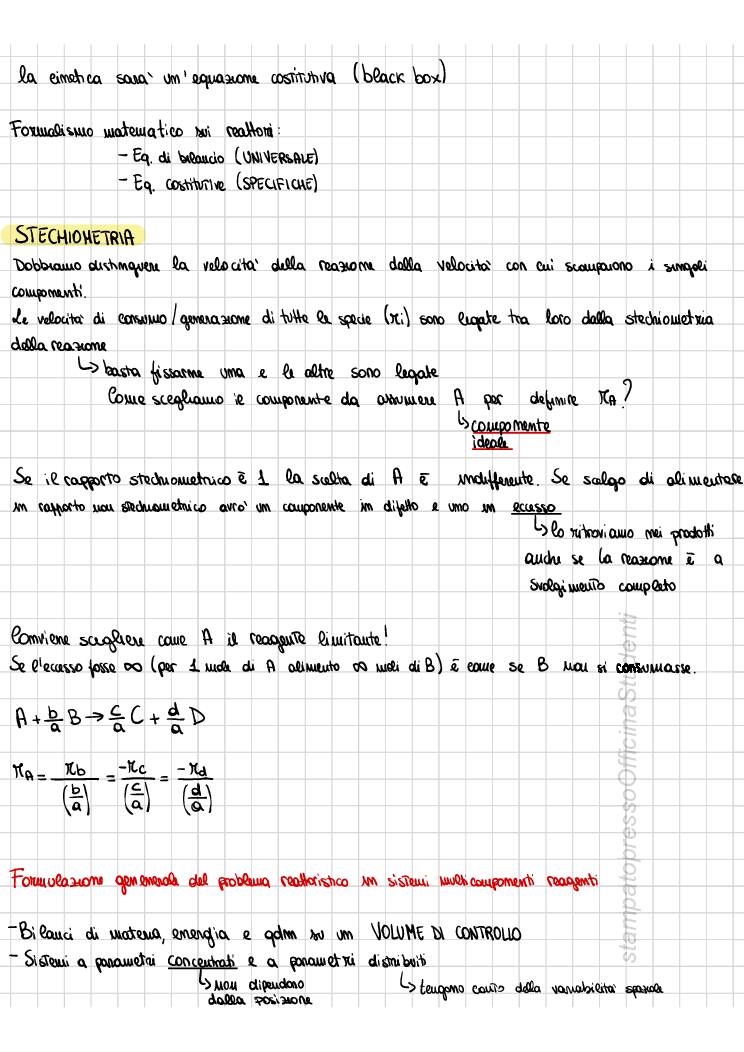 la cinetica sarà un'equazione costitutiva (black box)
Formalismo matematico sui reattori:
- Eq. di bilancio (UNIVERSALE)
- Eq. costitutive (SPECIFICHE)
STECHIOMETRIA
Dobbiamo distinguere la velocità della reazione dalla velocità con cui scompaiono i singoli
componenti.
Le velocità di consumo/generazione di tutte le specie (ri) sono legate tra loro dalla stechiometria
della reazione
↳ basta fissarne una e le altre sono legate
Come scegliamo il componente da assumere A per definire rA?
↳ componente
ideale
Se il rapporto stechiometrico è 1 la scelta di A è indifferente. Se scelgo di alimentare
in rapporto non stechiometrico avrò un componente in difetto e uno in eccesso
↳ lo ritroviamo nei prodotti
anche se la reazione è a
svolgimento completo
Conviene scegliere come A il reagente limitante!
Se l'eccesso fosse ∞ (per 1 mole di A alimento ∞ moli di B) è come se B non si consumasse.
A + b/a B → c/a C + d/a D
rA = rb/(b/a) = -rc/(c/a) = -rd/(d/a)
Formulazione genenerale del problema reattoristico in sistemi multicomponenti reagenti
- Bilanci di materia, energia e qdm su un VOLUME DI CONTROLLO
- Sistemi a parametri concentrati e a parametri distribuiti
↳ non dipendono
dalla posizione
↳ tengono conto della variabilità spaziale
stampatopressoOfficinaStudenti